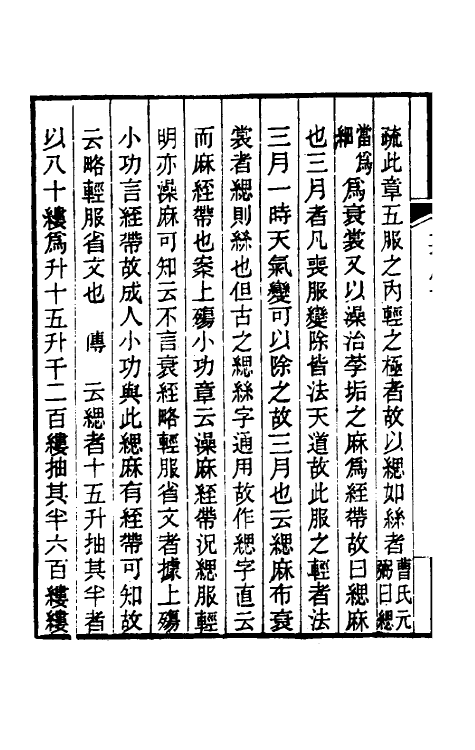 疏此章五服之內輕之極者故以緦如絲者曹氏元弼曰緦
當爲細爲衰裳又以澡治莩垢之麻爲絰帶故曰緦麻
也三月者凡喪服變除皆法天道故此服之輕者法
三月一時天氣變可以除之故三月也云緦麻布衰
裳者緦則絲也但古之緦絲字通用故作緦字直云
而麻絰帶也案上殤小功章云澡麻絰帶況緦服輕
明亦澡麻可知云不言衰絰略輕服省文者據上殤
小功言絰帶故成人小功與此緦麻有絰帶可知故
云略輕服省文也　傳　云緦者十五升抽其半者
以八十縷爲升十五升千二百縷抽其半六百縷縷